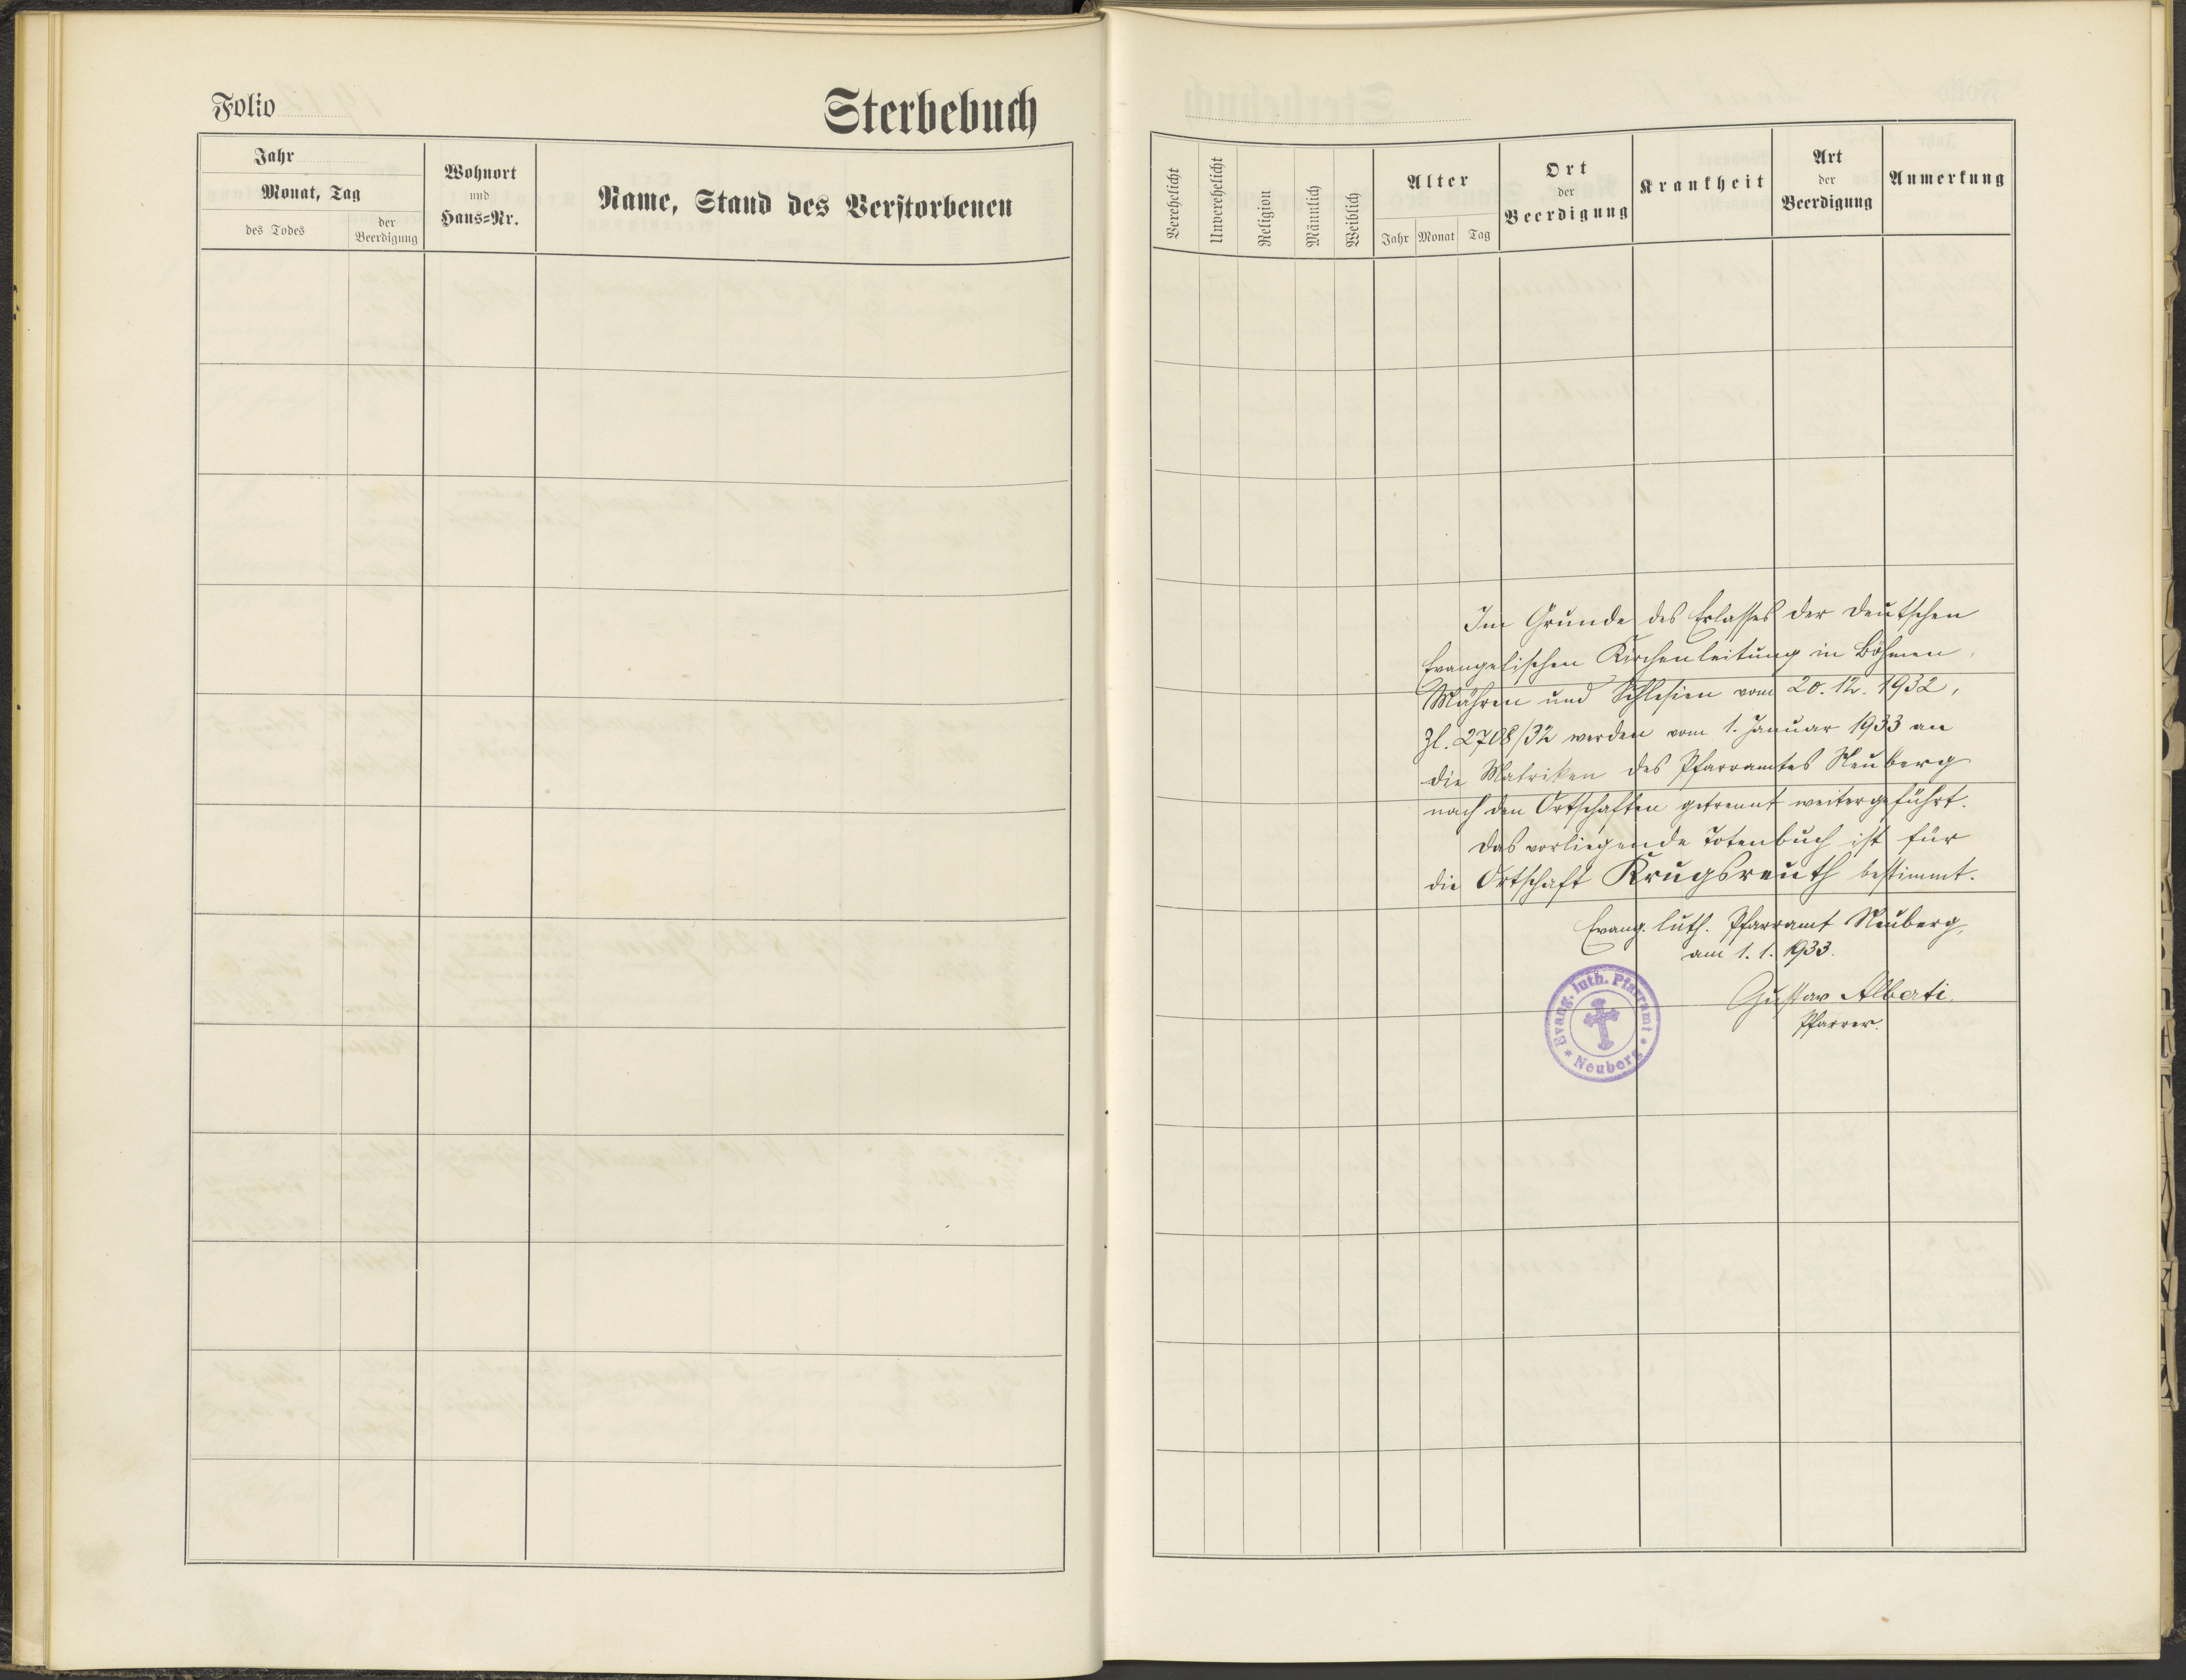 Folio
Sterbebuch
Jahr
Monat, Tag
des Todes
der Beerdigung
Wohnort
und
Haus=Nr.
Name, Stand des Verstorbenen
Verehelicht
Unverehelicht
Religion
Männlich
Weiblich
Alter
Jahr Monat Tag
Ort
der
Beerdigung
Krankheit
Art
der
Beerdigung
Anmerkung
Im Grunde des Erlasses der Deutschen
Evangelischen Kirchenleitung in Böhmen,
Mähren und Schlesien vom 20. 12. 1932,
Zl. 2708/32 werden vom 1. Januar 1933 an
die Matriken des Pfarramtes Neuberg
nach den Ortschaften getrennt weitergeführt.
Das vorliegende Totenbuch ist für
die Ortschaft Krugsreuth bestimmt.
Evang. luth. Pfarramt Neuberg,
am 1. 1. 1933.
Gustav Alberti,
Pfarrer.
Evang. luth. Pfarramt * Neuberg *